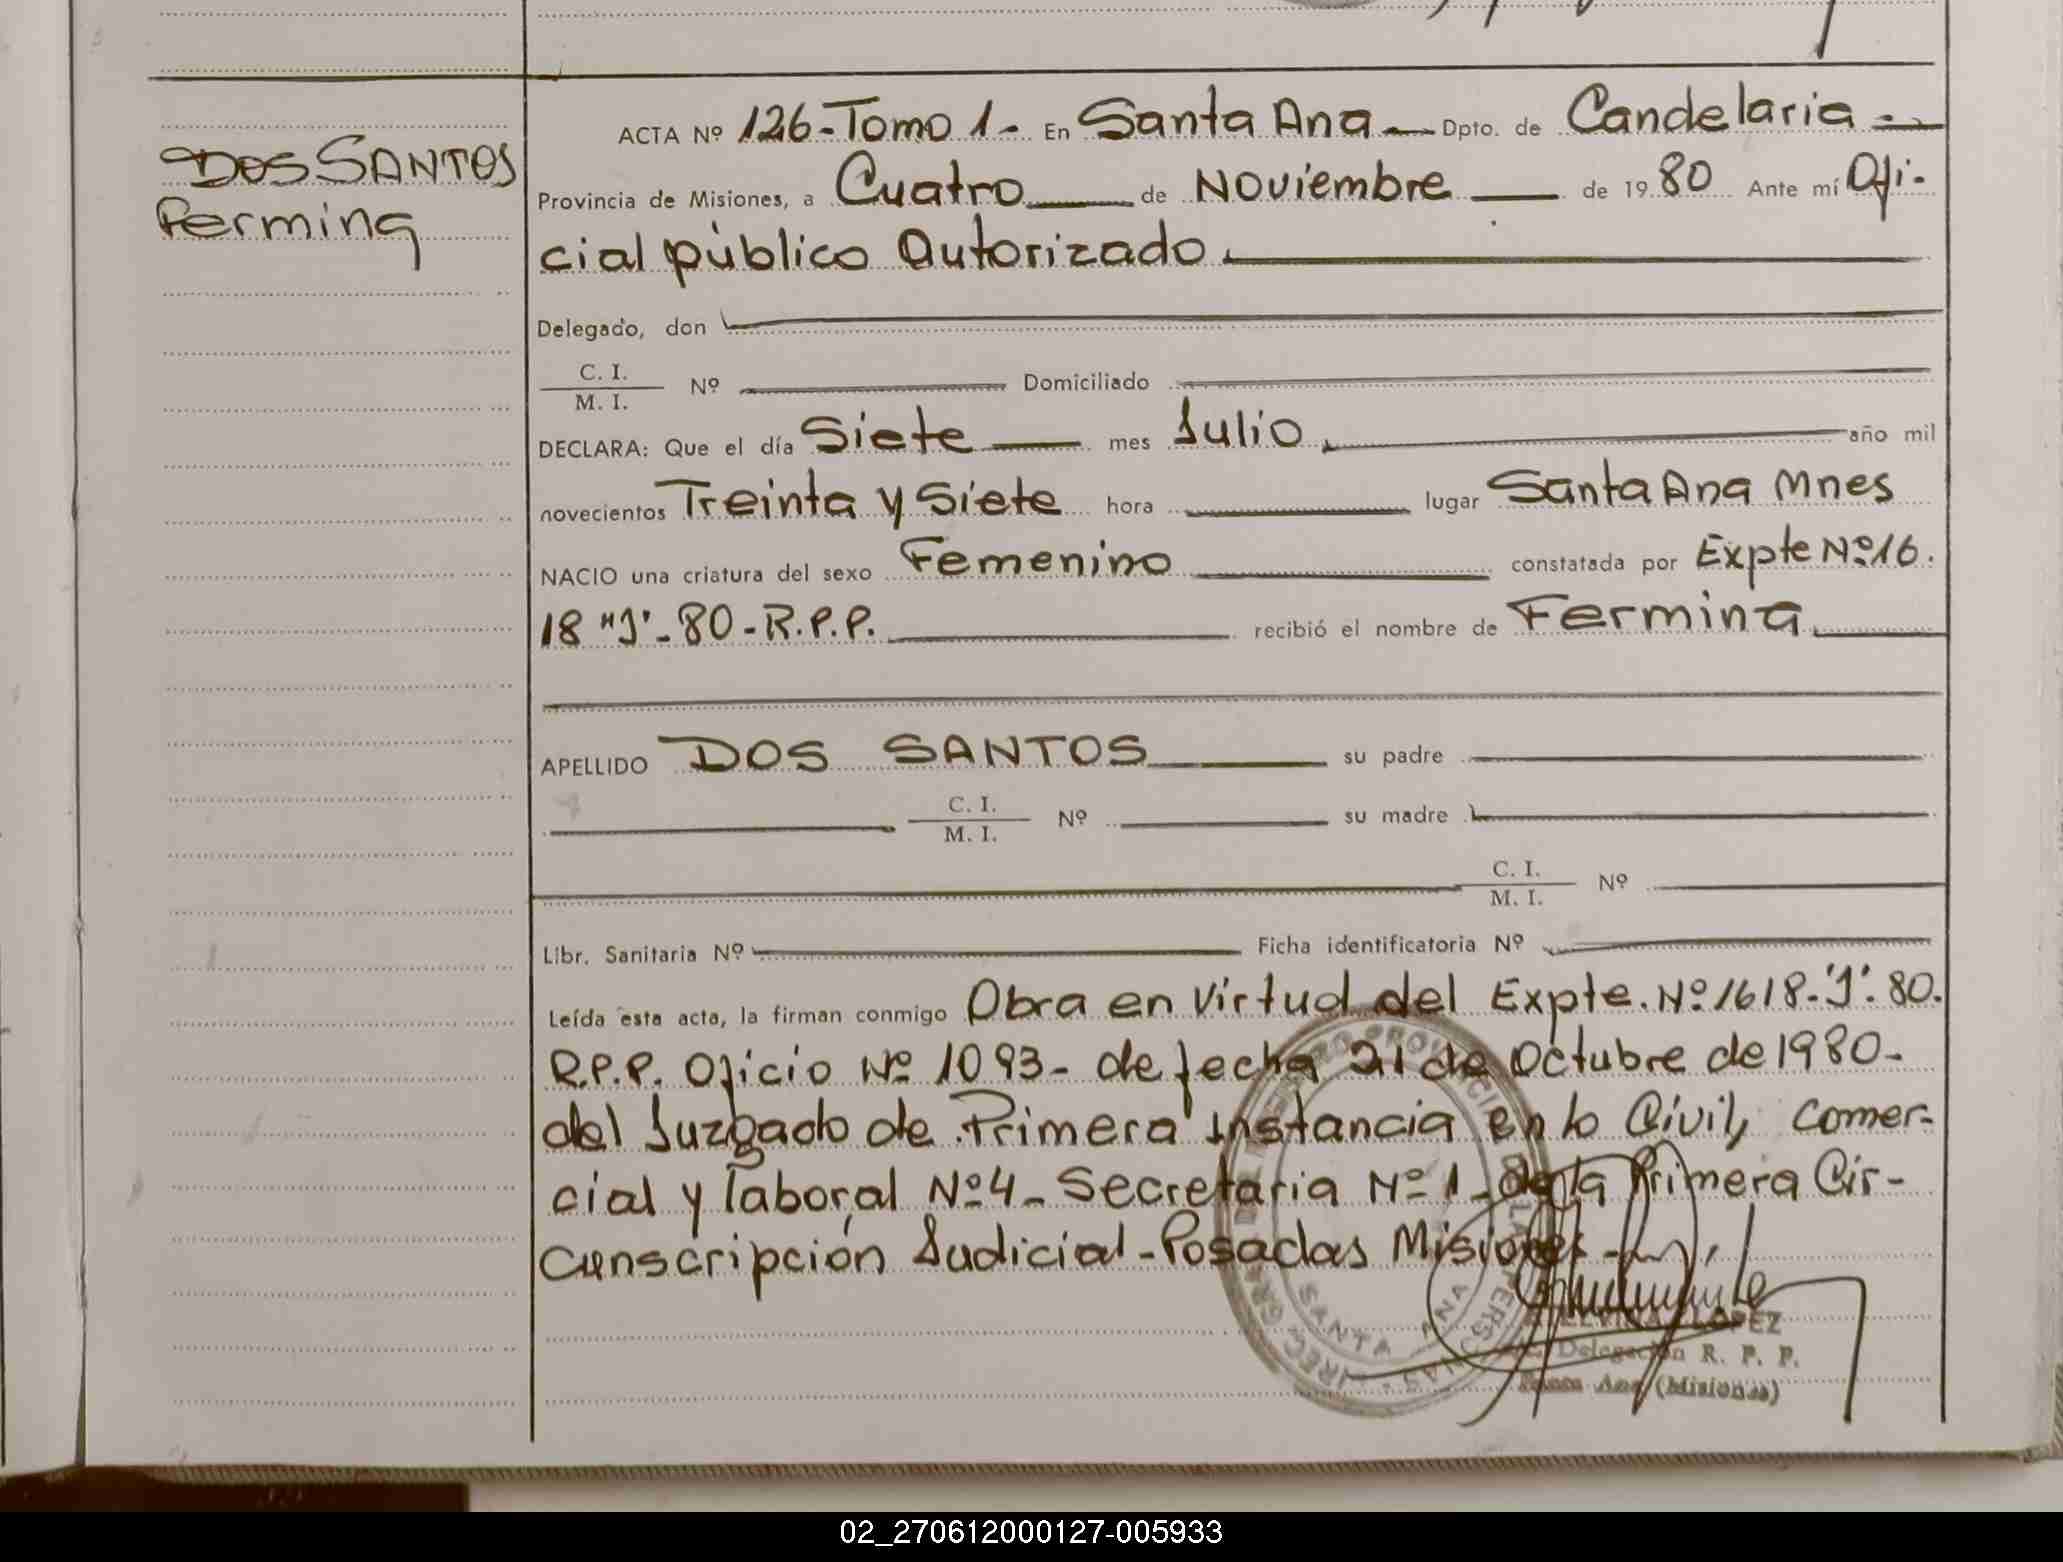 ACTA Nº 126-Tomo 1- En Santa Ana Dpto. de Candelaria
DOS SANTOS
Fermina
Provincia de Misiones, a Cuatro de Noviembre de 1980 Ante mí Ofi-
cial público Autorizado
Delegado, don
C. I.
M. I. Nº Domiciliado
DECLARA: Que el día Siete mes Julio año mil
novecientos Treinta y Siete hora lugar Santa Ana Mnes
NACIO una criatura del sexo Femenino constatada por Expte Nº 16.
18 "J"-80-R.P.P. recibió el nombre de Fermina
APELLIDO DOS SANTOS su padre
C. I.
M. I. Nº su madre
C. I.
M. I. Nº
Libr. Sanitaria Nº Ficha identificatoria Nº
Leída esta acta, la firman conmigo Obra en virtud del Expte. Nº 1618-"J"-80.
R.P.P. Oficio Nº 1093- de fecha 21 de Octubre de 1980-
del Juzgado de Primera Instancia en lo Civil, Comer-
cial y Laboral Nº 4- Secretaria Nº 1- de la Primera Cir-
cunscripción Judicial-Posadas Misiones-
SANTA ANA
LOPEZ
Delegación R. P. P.
Santa Ana (Misiones)
02_270612000127-005933